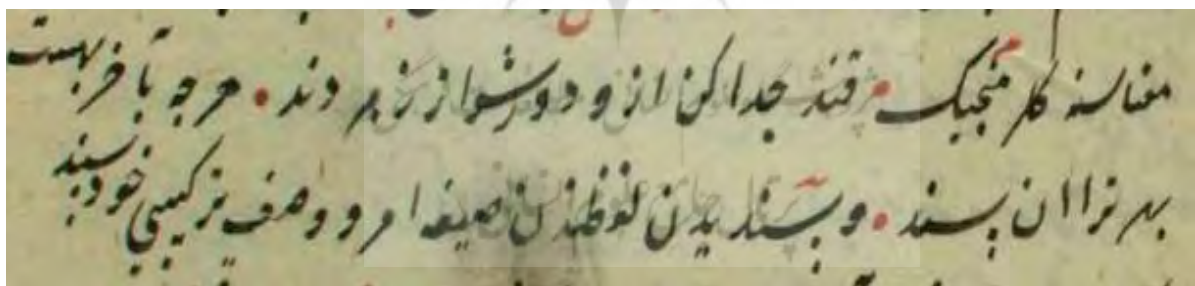 مغناسنه کلر منجیک • قند جدا کن از و دور شو از زهر دند • هر چه بآخر بهست
بهر ترا ان پسند • و پسندیدن لفظندن صیغه امر و وصف ترکیبی خود پسند